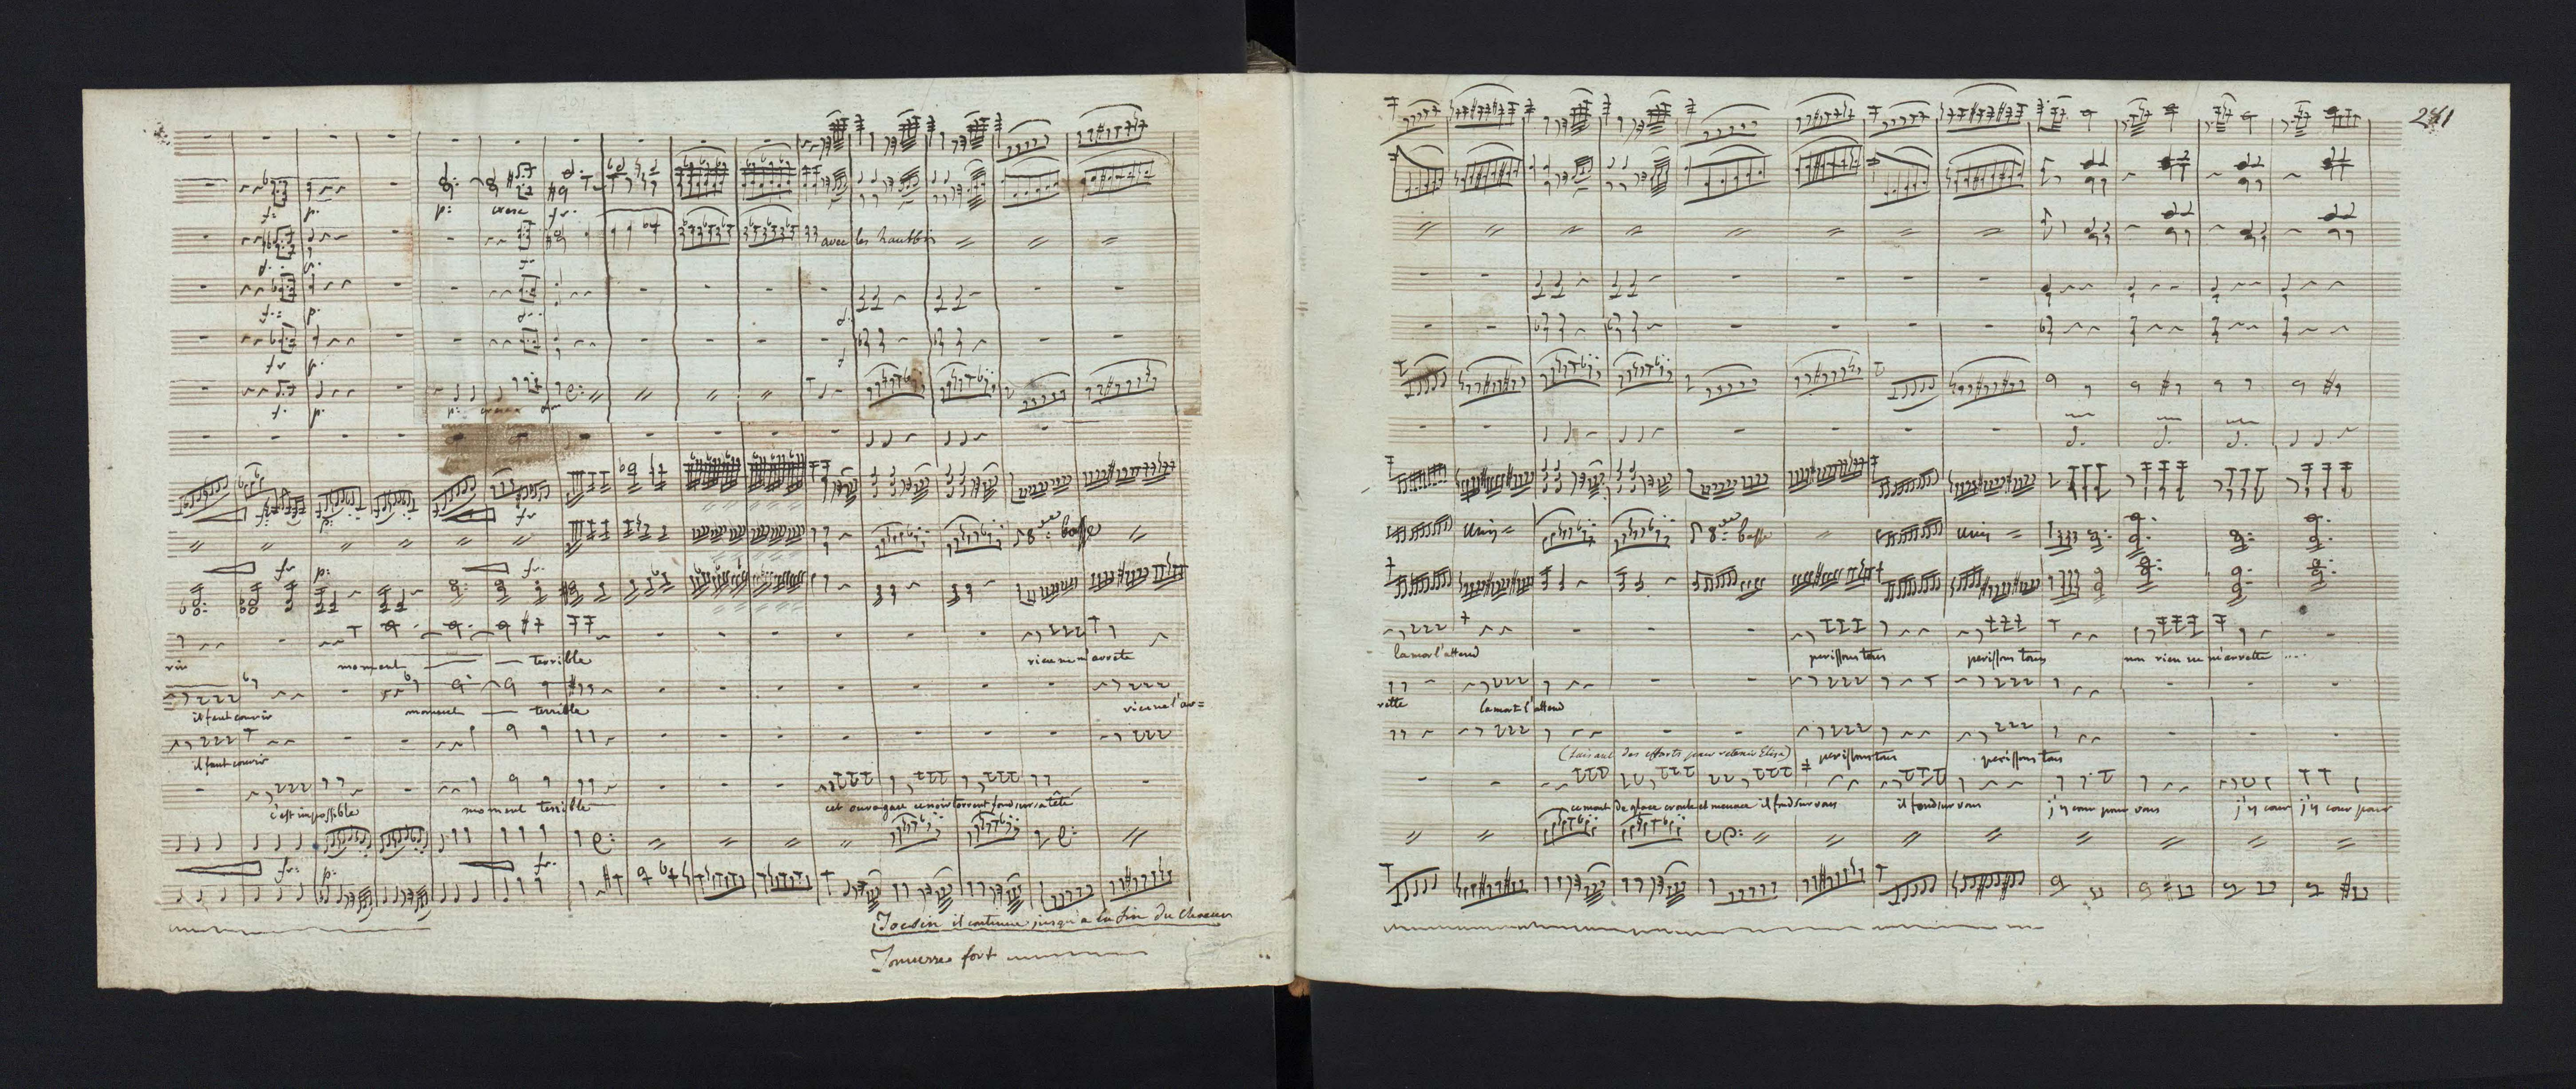 f: p:
p: cresc fr.
avec les hautbois
f: p.
fr p.
f. p.
p: cresc
fr
fr p:
fr.
8.ve basse
rir
moment terrible
rien ne m'arrete
il faut courir
moment terrible
rien ne l'ar=
il faut courir
c'est impossible
moment terrible
cet ouragan ce noir torrent fond sur sa tête
fr: p:
fr.
Tocsin il continue jusqu'a la fin du Choeur
Tonnerre fort
241
unis =
8.ve basse
unis =
la mort l'attend
perissons tous
perissons tous
non rien ne m'arrette ....
rette
la mort l'attend
(faisant des efforts pour retenir Elisa)
perissons tous
perissons tous
ce mont de glace croule et menace il fond sur vous
il fond sur vous
j'y cour pour vous
j'y cour j'y cour pour